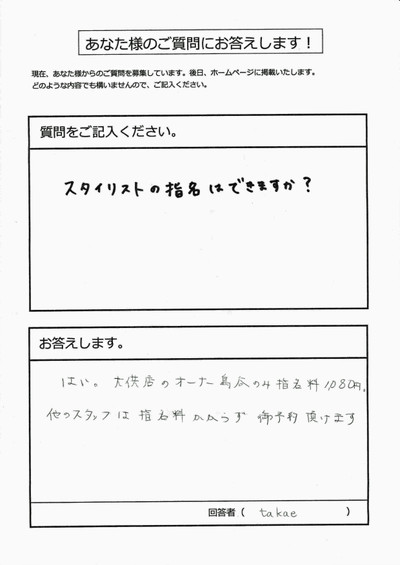 あなた様のご質問にお答えします！
現在、あなた様からのご質問を募集しています。後日、ホームページに掲載いたします。
どのような内容でも構いませんので、ご記入ください。
質問をご記入ください。
スタイリストの指名はできますか？
お答えします。
はい。大供店のオーナー鳥瓜のみ指名料1,080円。
他のスタッフは指名料かからず御予約頂けます
回答者（ takae ）